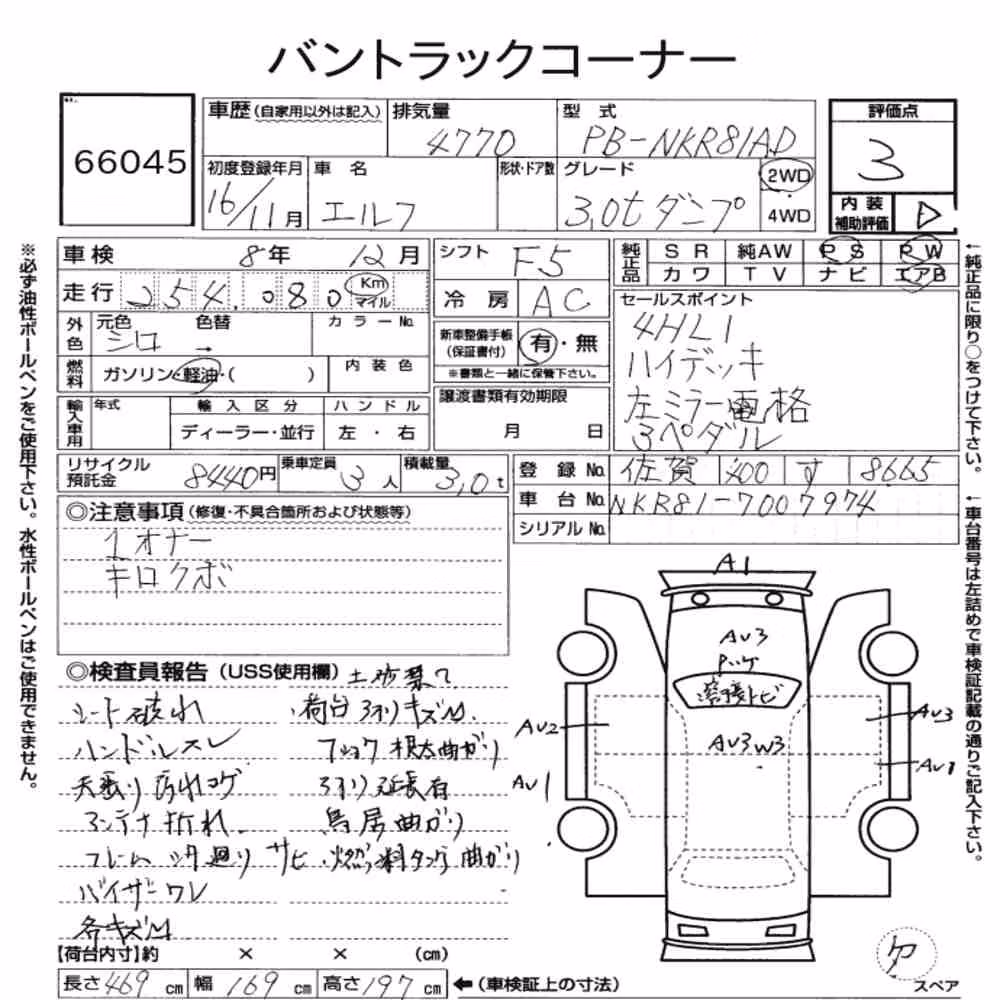 バントラックコーナー
66045
車歴(自家用以外は記入)
排気量
4770
型 式
PB-NKR81AD
評価点
3
初度登録年月
16/11月
車 名
エルフ
形状・ドア数
グレード
3.0tダンプ
2WD
4WD
内 装
補助評価
D
車検 8年 12月
シフト F5
純正品
S R 純AW P S P W
カワ T V ナビ エアB
走行 254.080 Km
マイル
冷 房 AC
セールスポイント
4HL1
ハイデッキ
左ミラー電格
3ペダル
外色
元色 色替
シロ →
カラーNo.
新車整備手帳
(保証書付)
有・無
※書類と一緒に保管下さい。
燃料
ガソリン・軽油・( )
内 装 色
輸入車用
年式
輸 入 区 分
ハ ン ド ル
ディーラー・並行
左 ・ 右
譲渡書類有効期限
月 日
リサイクル
預託金
8440円
乗車定員
3人
積載量
3.0t
登 録 No. 佐賀 400 す 8665
車 台 No. NKR81-7007974
シリアル No.
◎注意事項(修復・不具合箇所および状態等)
1オナー
キロクボ
◎検査員報告(USS使用欄) 土砂禁て
シート破れ
荷台 3方リキズM.
ハンドルスレ
フック根太曲がり
天張り汚れコゲ
3方リ延長有
アンテナ折れ.
鳥居曲がり
フレーム 下廻り サビ
燃料タンク曲がり
バイザーワレ
各キズM
A1
AU3
Pハゲ
溶接トビ
AU2
AU3
AU3W3
AU1
AU1
ケ
スペア
【荷台内寸】約 × × (cm)
長さ469cm 幅169cm 高さ197cm ←(車検証上の寸法)
※必ず油性ボールペンをご使用下さい。水性ボールペンはご使用できません。
←純正品に限り○をつけて下さい。
←車台番号は左詰めで車検証記載の通りご記入下さい。